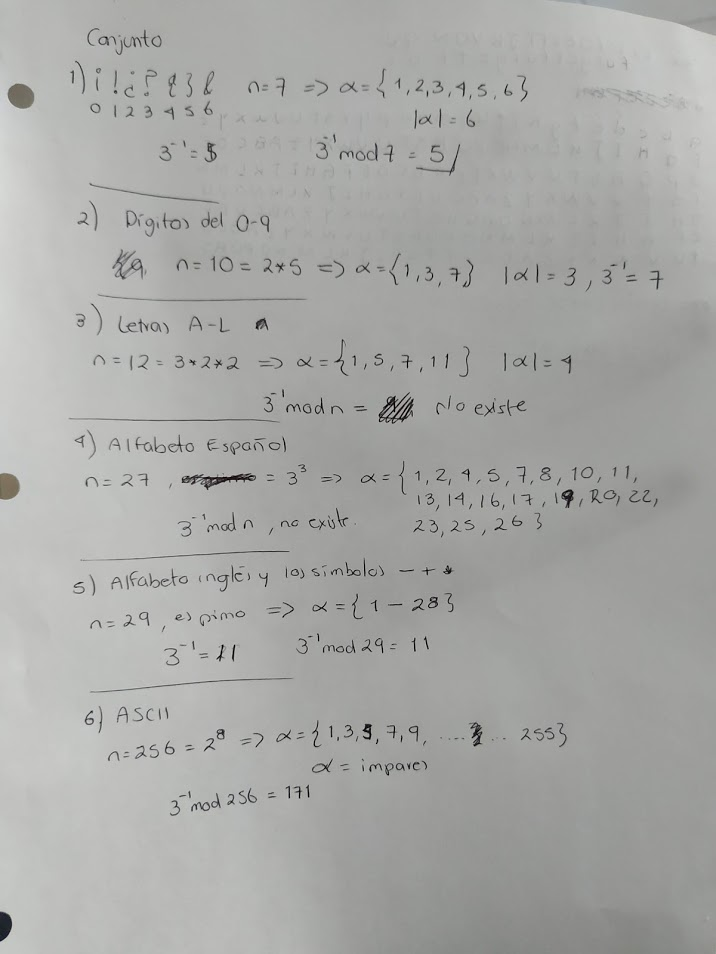 Conjunto
1) ¡ ! ¿ ? { } & n=7 => α={1,2,3,4,5,6}
0 1 2 3 4 5 6 |α|=6
3⁻¹=5 3⁻¹mod7 = 5/
2) Dígitos del 0-9
n=10=2*5 => α={1,3,7} |α|=3, 3⁻¹=7
3) Letras A-L
n=12=3*2*2 => α={1,5,7,11} |α|=4
3⁻¹modn = No existe
4) Alfabeto Español
n=27, =3³ => α={1,2,4,5,7,8,10,11,
13,14,16,17,19,20,22,
3⁻¹modn, no existe. 23,25,26}
5) Alfabeto inglés y los símbolos - + *
n=29, es pimo => α={1-28}
3⁻¹=11 3⁻¹mod29=11
6) ASCII
n=256=2⁸ => α={1,3,5,7,9,........255}
α=impares
3⁻¹mod256=171